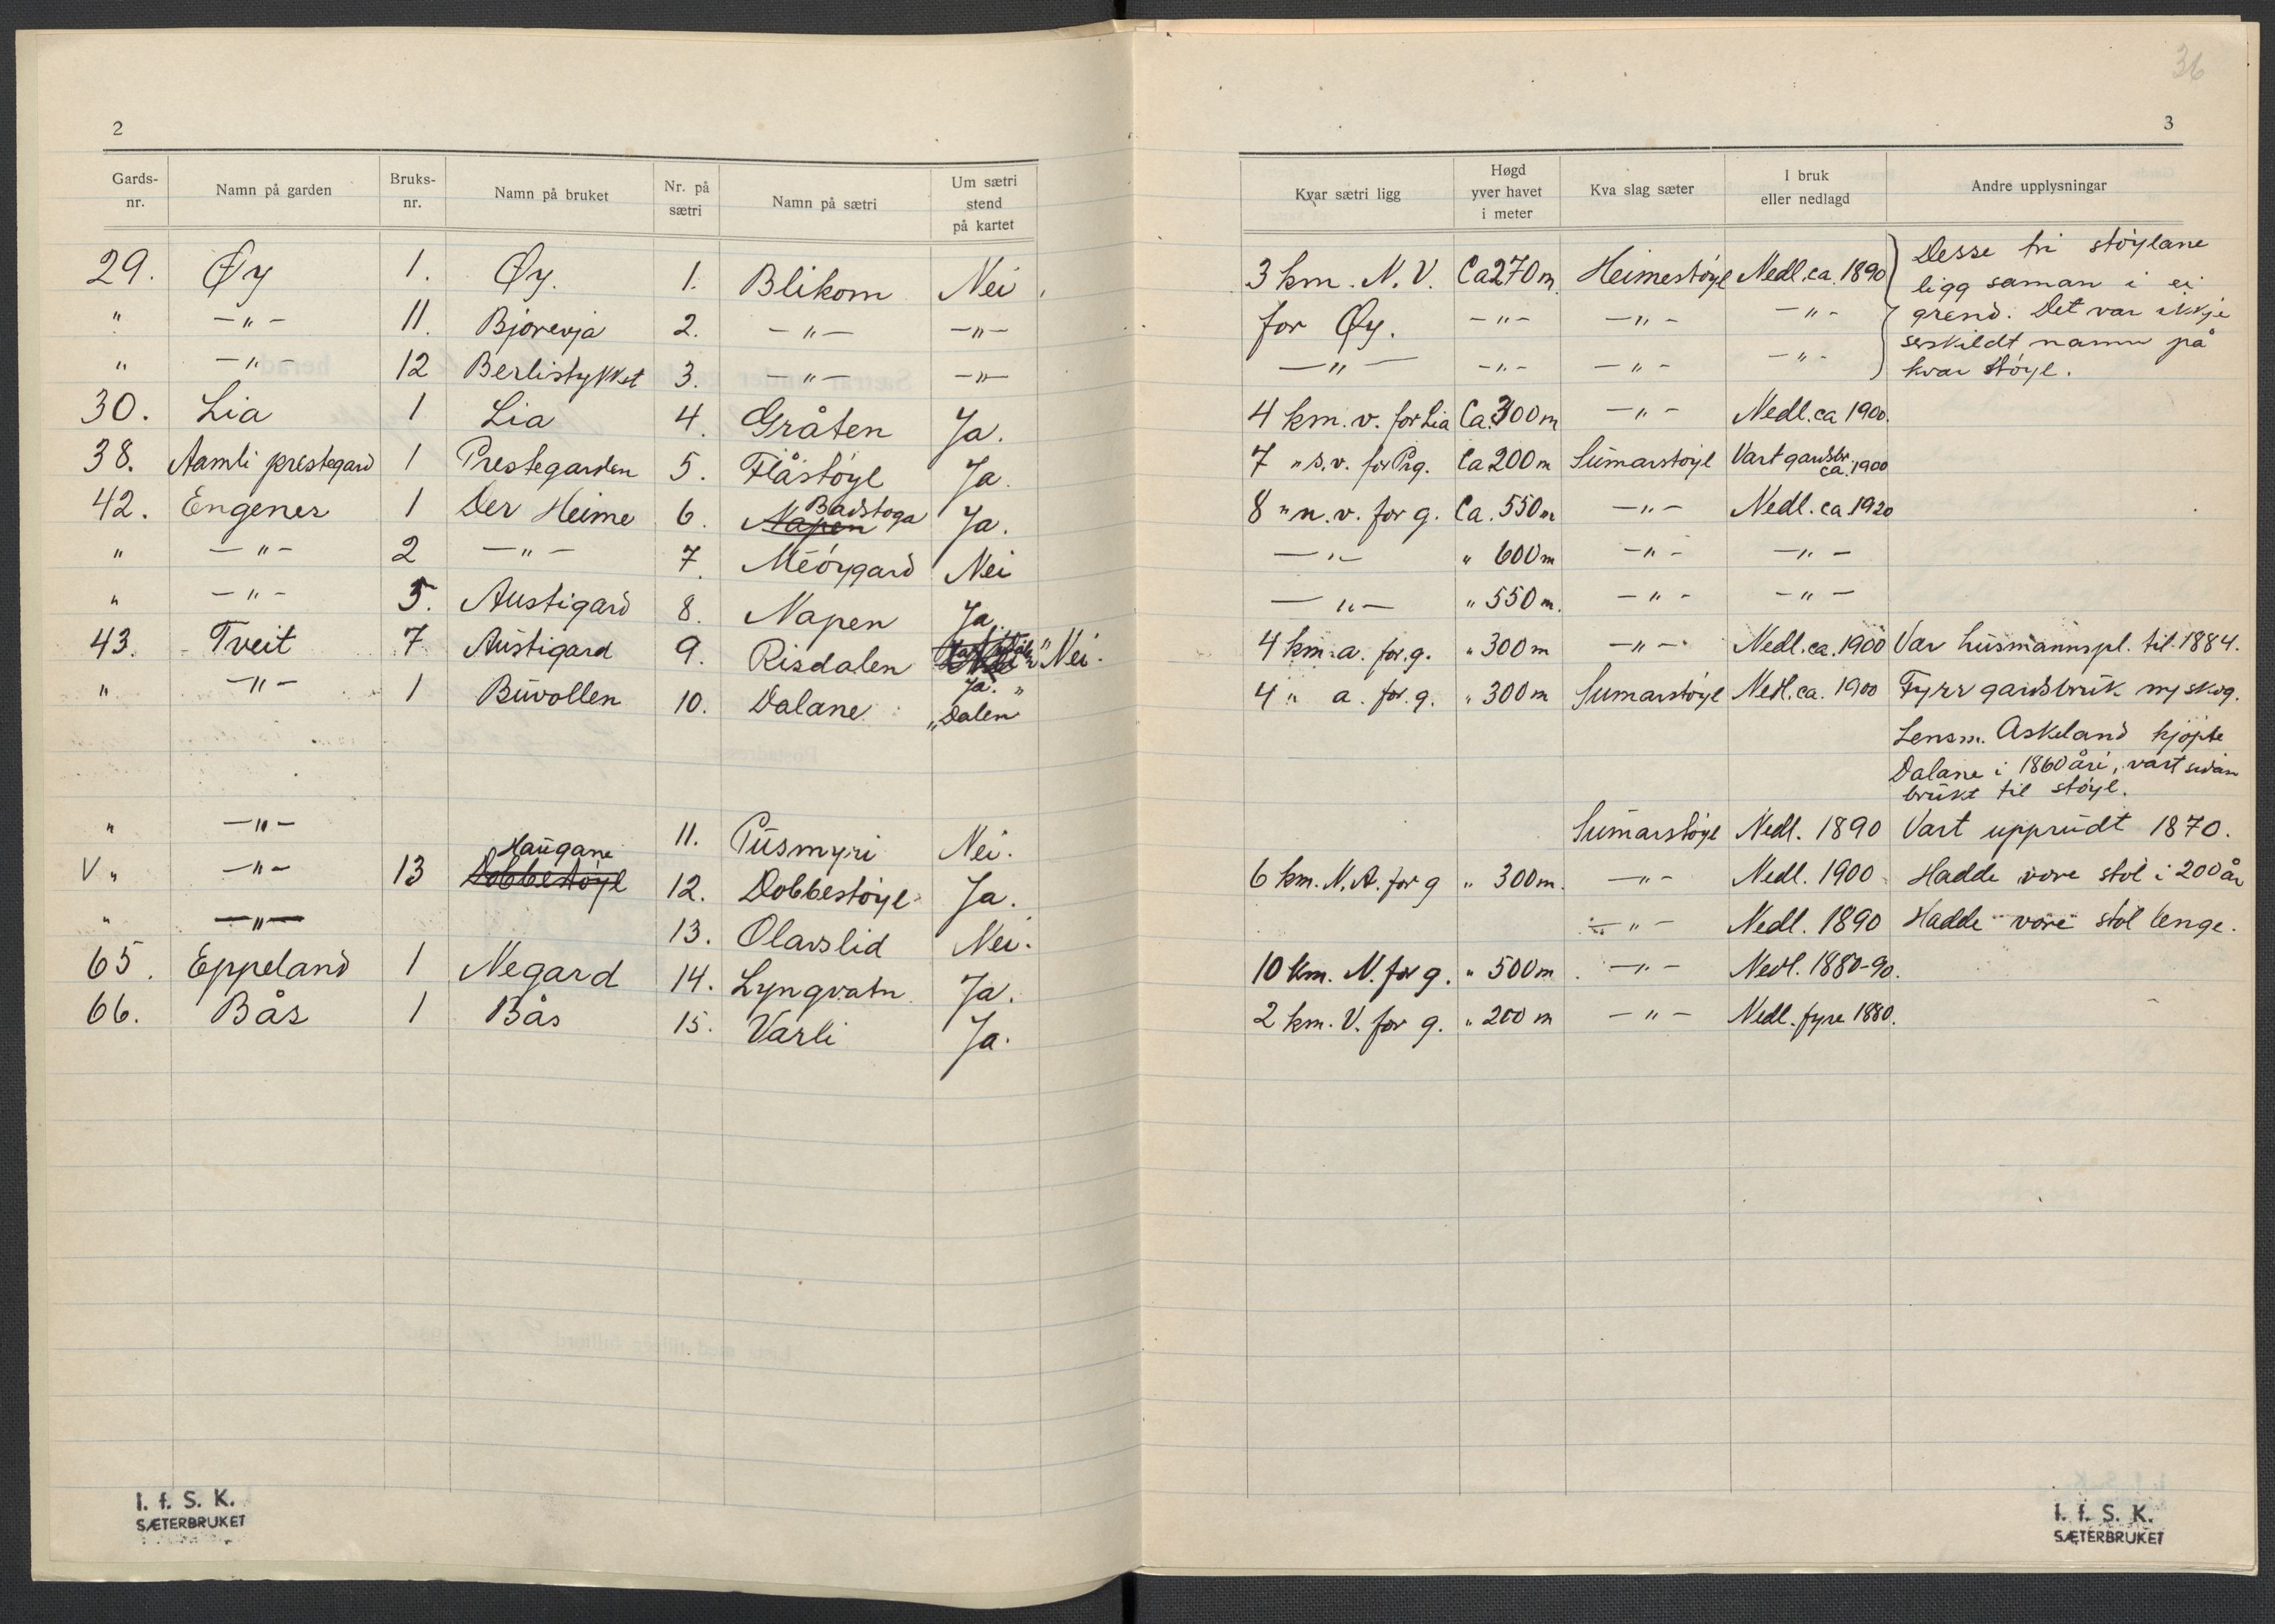 36
2
3
Gards-nr. Namn på garden Bruks-nr. Namn på bruket Nr. på sætri Namn på sætri Um sætri stend på kartet
29. Øy 1. Øy. 1. Blikom Nei
" —"— 11. Bjorevja 2. —"— —"—
" —"— 12 Berlistykket 3. —"— —"—
30. Lia 1 Lia 4. Gråten Ja.
38. Aamli prestegard 1 Prestegarden 5. Flåstøyl Ja.
42. Engenes 1 Der Heime 6. Napen Badstoga Ja.
" —"— 2 —"— 7. Méøygard Nei
" —"— 5. Austigard 8. Napen Ja.
43. Tveit 7 Austigard 9. Risdalen Nei.
" —"— 1 Buvollen 10. Dalane Ja. "Dalen"
" —"— 11. Pusmyri Nei.
V " —"— 13 Dobbestøyl Haugane 12. Dobbestøyl Ja.
" —"— 13. Olavslid Nei.
65. Eppeland 1 Negard 14. Lyngvatn Ja.
66. Bås 1 Bås 15. Varli Ja.
I. f. S. K.
SÆTERBRUKET
Kvar sætri ligg Høgd yver havet i meter Kva slag sæter I bruk eller nedlagd Andre upplysningar
3 km. N. V. Ca 270 m. Heimestøyl Nedl. ca. 1890 Desse tri støylane
ligg saman i ei
for Øy. —"— —"— —"— grend. Det var ikkje
serskildt namn på
—"— —"— —"— —"— kvar støyl.
4 km. v. for Lia Ca. 300 m —"— Nedl. ca 1900.
7 " s.v. for Prg. Ca 200 m Sumarstøyl Vart gardsbr. ca. 1900
8 " n.v. for g. Ca. 550 m —"— Nedl. ca 1920
—"— " 600 m —"— —"—
—"— " 550 m. —"— —"—
4 km. a. for g. " 300 m —"— Nedl. ca. 1900 Var husmannspl. til 1884.
4 " a. for g. " 300 m Sumarstøyl Nedl. ca. 1900 Fyrr gardsbruk m/ skog.
Lensm. Askeland kjøpte
Dalane i 1860 åri, vart sidan
brukt til støyl.
Sumarstøyl Nedl. 1890 Vart upprudt 1870.
6 km. N.A. for g " 300 m. —"— Nedl. 1900 Hadde vore støl i 200 år
—"— Nedl. 1890 Hadde vore støl lenge.
10 km. N. for g. " 500 m —"— Nedl. 1880-90.
2 km. V. for g. " 200 m —"— Nedl. fyre 1880.
I. f. S. K.
SÆTERBRUKET